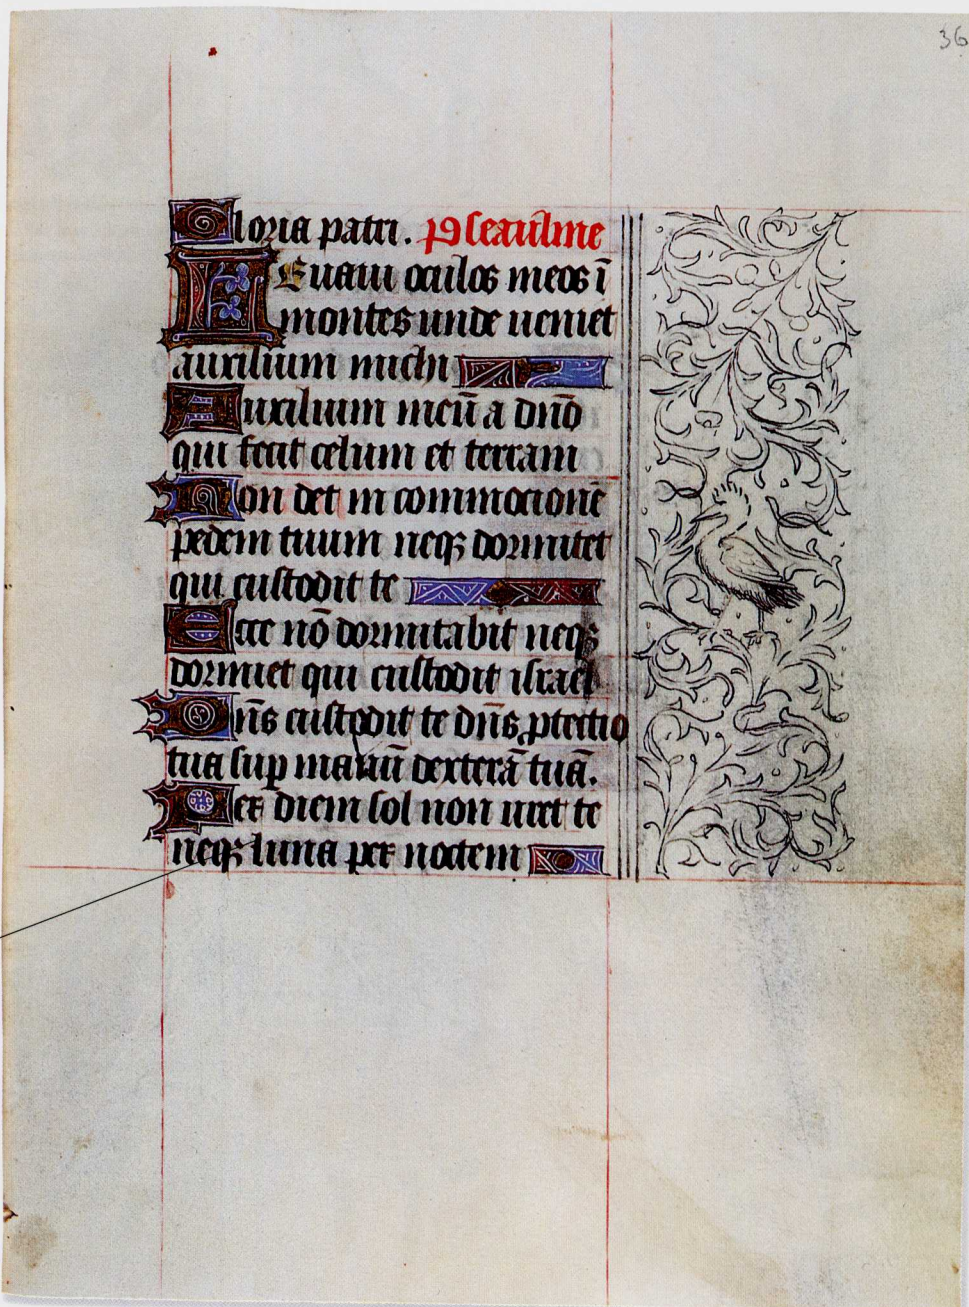 36
Gloria patri. Pseaulme
Leuaui oculos meos ī
montes unde ueniet
auxilium michi
Auxilium meū a dnō
qui fecit celum et terram
Non det in commocionē
pedem tuum neqꝫ dormitet
qui custodit te
Ecce nō dormitabit neqꝫ
dormiet qui custodit israel
Dn̄s custodit te dn̄s ꝓtectio
tua suꝑ manū dexterā tuā.
Per diem sol non uret te
neqꝫ luna per noctem